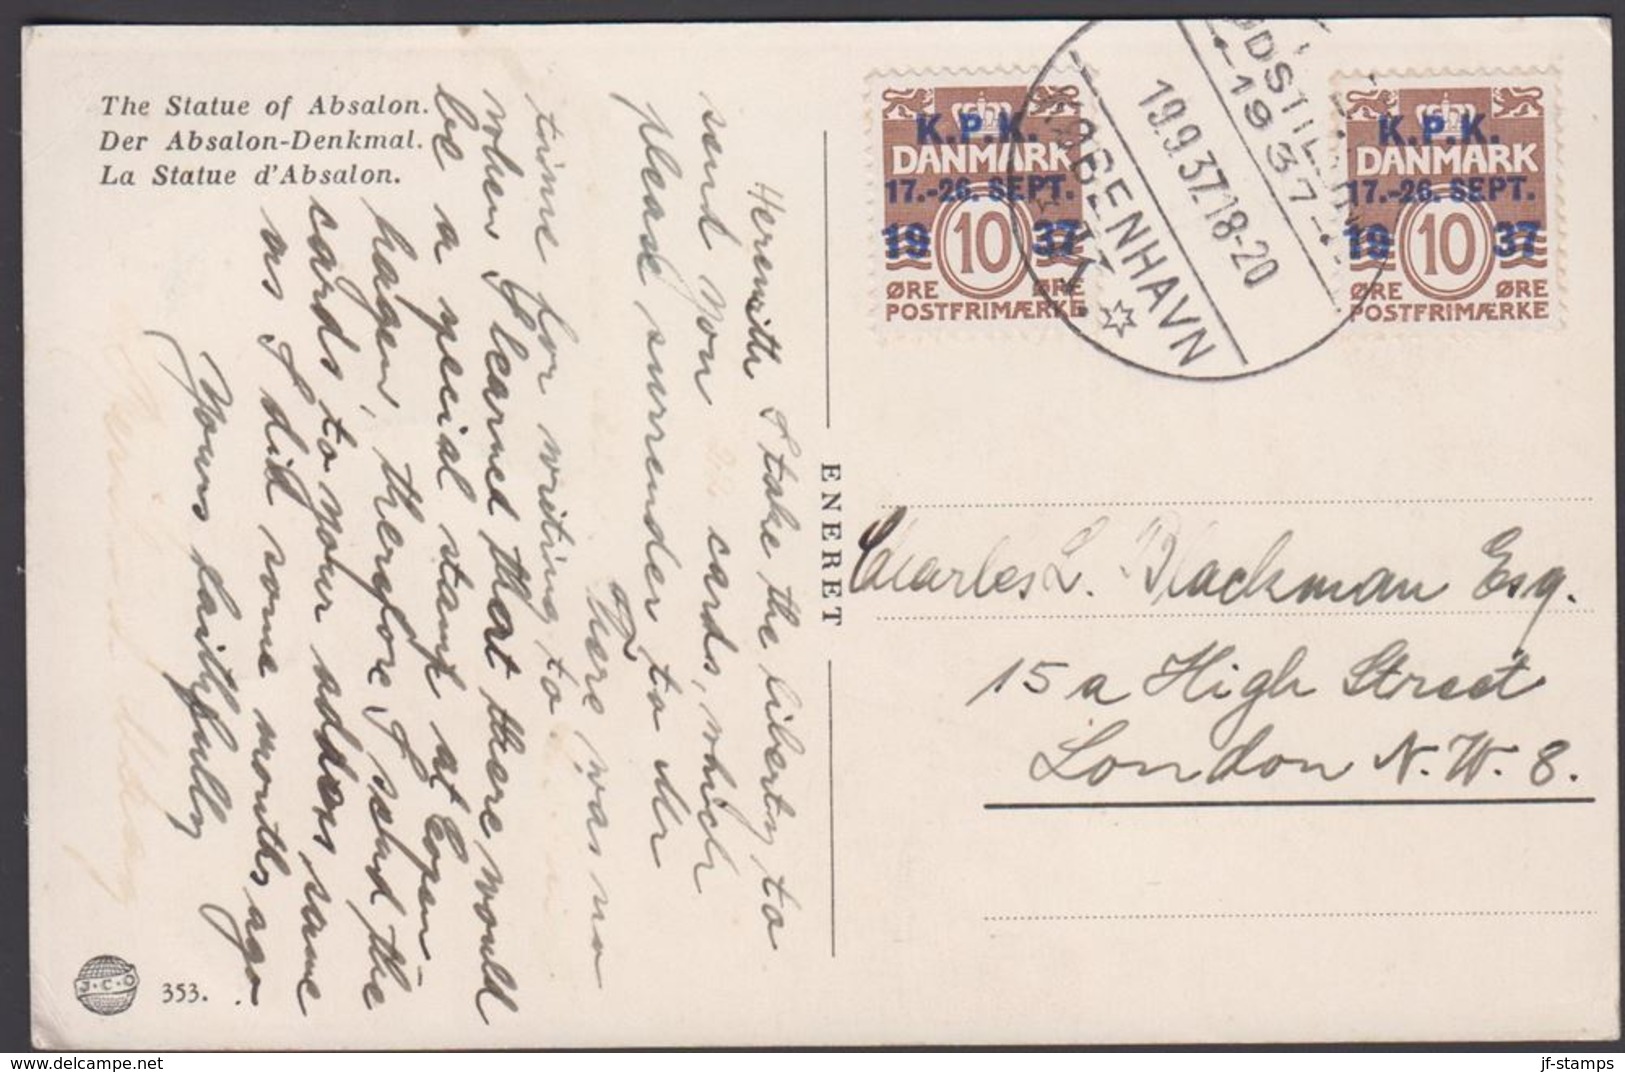 The Statue of Absalon.
Der Absalon-Denkmal.
La Statue d'Absalon.
Herewith I take the liberty to
sent you cards, which
please surrender to Mr
There was no
time for writing to
when I learned that there would
be a special stamp at Copen-
hagen, therefore I send the
cards to your address same
as I did some months ago
Yours faithfully
J.C.O
353.
ENERET
K.P.K.
DANMARK
17.-26. SEPT.
19 37
10
ØRE ØRE
POSTFRIMÆRKE
KØBENHAVN
19.9.37.18-20
1937
K.P.K.
DANMARK
17.-26. SEPT.
19 37
10
ØRE ØRE
POSTFRIMÆRKE
Charles L. Blackman Esq.
15a High Street
London N.W. 8.
www.delcampe.net
jf-stamps